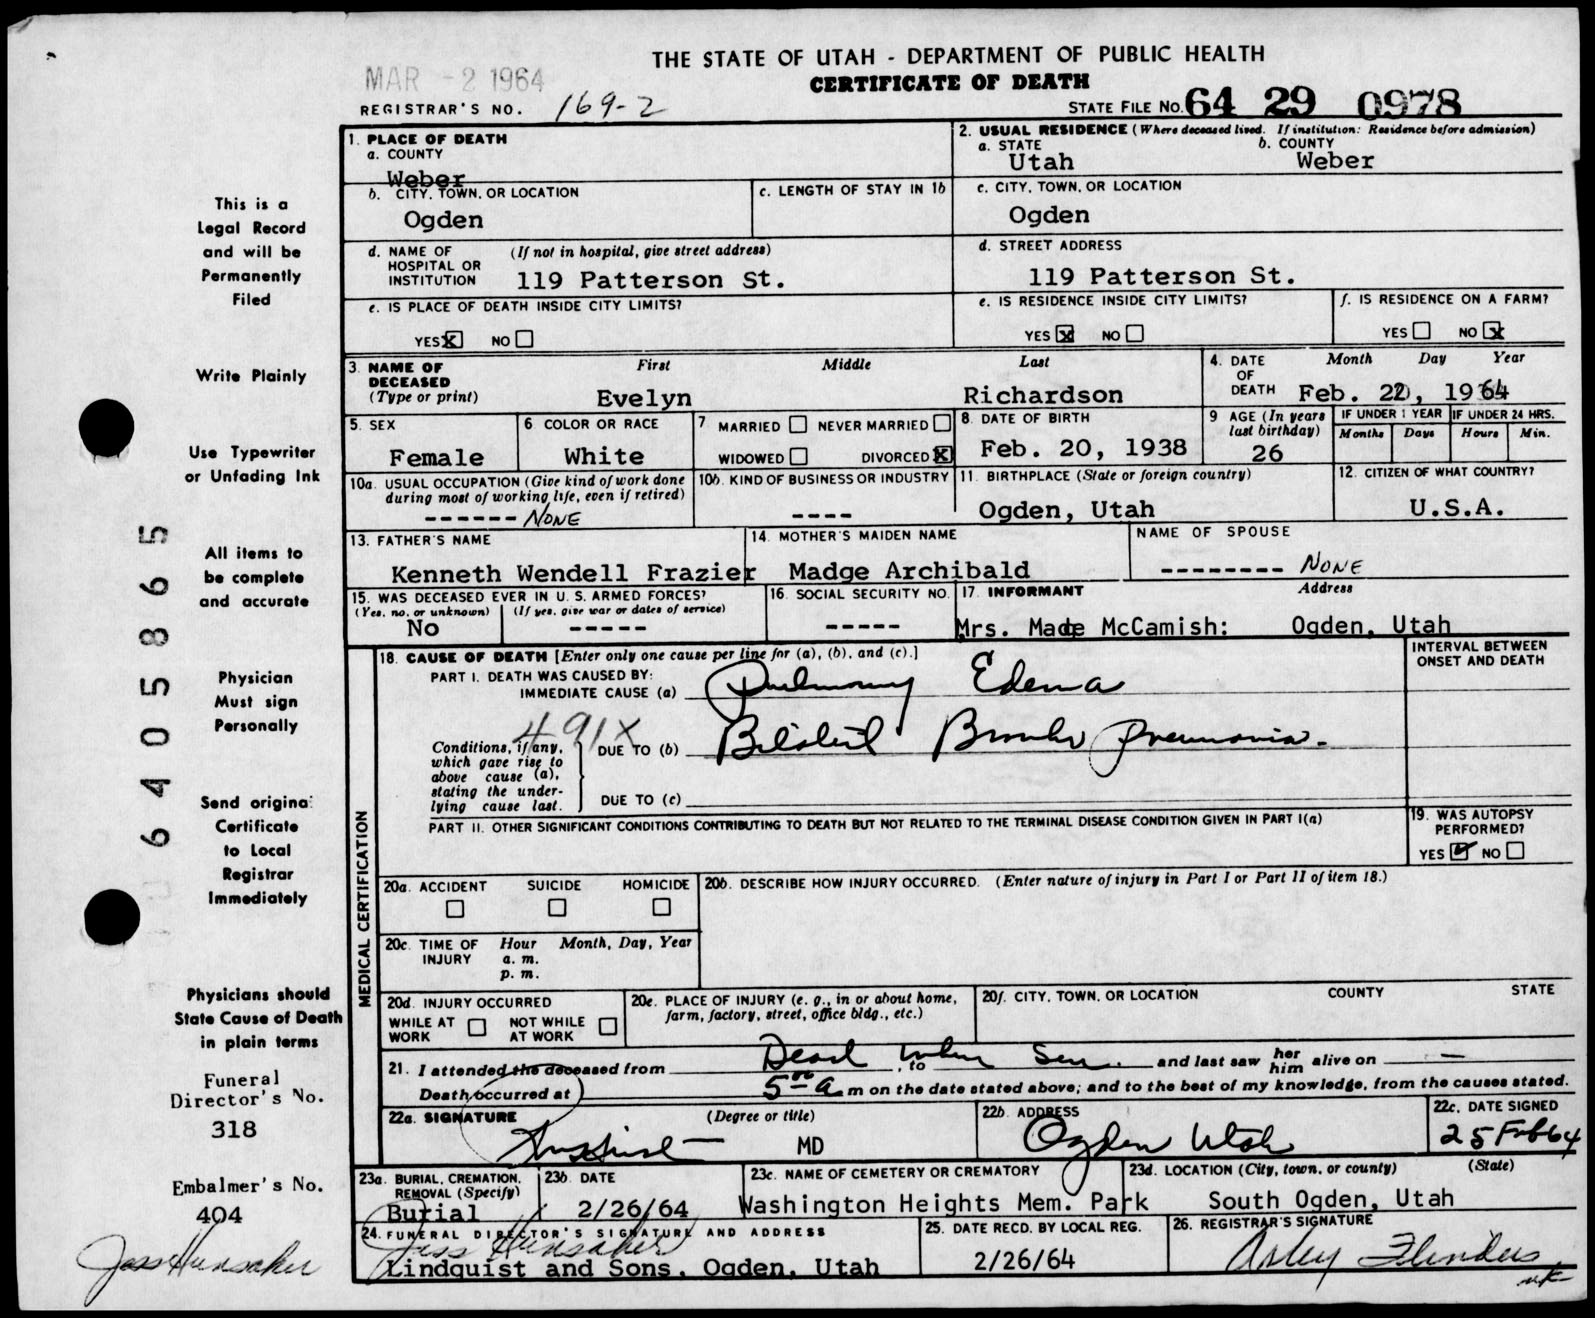 THE STATE OF UTAH - DEPARTMENT OF PUBLIC HEALTH
MAR -2 1964
CERTIFICATE OF DEATH
REGISTRAR'S NO. 169-2
STATE FILE NO. 64 29 0978
1. PLACE OF DEATH
a. COUNTY
Weber
2. USUAL RESIDENCE (Where deceased lived. If institution: Residence before admission)
a. STATE
Utah
b. COUNTY
Weber
b. CITY, TOWN, OR LOCATION
Ogden
c. LENGTH OF STAY IN 1b
c. CITY, TOWN, OR LOCATION
Ogden
d. NAME OF HOSPITAL OR INSTITUTION (If not in hospital, give street address)
119 Patterson St.
d. STREET ADDRESS
119 Patterson St.
e. IS PLACE OF DEATH INSIDE CITY LIMITS?
YES X NO
e. IS RESIDENCE INSIDE CITY LIMITS?
YES X NO
f. IS RESIDENCE ON A FARM?
YES NO X
3. NAME OF DECEASED (Type or print)
First Middle Last
Evelyn Richardson
4. DATE OF DEATH Month Day Year
Feb. 22, 1964
5. SEX
Female
6 COLOR OR RACE
White
7 MARRIED NEVER MARRIED
WIDOWED DIVORCED X
8 DATE OF BIRTH
Feb. 20, 1938
9 AGE (In years last birthday)
26
IF UNDER 1 YEAR
Months Days
IF UNDER 24 HRS.
Hours Min.
10a. USUAL OCCUPATION (Give kind of work done during most of working life, even if retired)
------ NONE
10b. KIND OF BUSINESS OR INDUSTRY
----
11. BIRTHPLACE (State or foreign country)
Ogden, Utah
12. CITIZEN OF WHAT COUNTRY?
U.S.A.
13. FATHER'S NAME
Kenneth Wendell Frazier
14. MOTHER'S MAIDEN NAME
Madge Archibald
NAME OF SPOUSE
-------- NONE
15. WAS DECEASED EVER IN U. S. ARMED FORCES?
(Yes, no, or unknown) (If yes, give war or dates of service)
No -----
16. SOCIAL SECURITY NO.
-----
17. INFORMANT Address
Mrs. Madge McCamish: Ogden, Utah
MEDICAL CERTIFICATION
18. CAUSE OF DEATH [Enter only one cause per line for (a), (b), and (c).]
PART I. DEATH WAS CAUSED BY:
IMMEDIATE CAUSE (a) Pulmonary Edema
INTERVAL BETWEEN ONSET AND DEATH
491X
Conditions, if any, which gave rise to above cause (a), stating the underlying cause last.
DUE TO (b) Bilateral Broncho pneumonia.
DUE TO (c)
PART II. OTHER SIGNIFICANT CONDITIONS CONTRIBUTING TO DEATH BUT NOT RELATED TO THE TERMINAL DISEASE CONDITION GIVEN IN PART I(a)
19. WAS AUTOPSY PERFORMED?
YES ✓ NO
20a. ACCIDENT SUICIDE HOMICIDE
20b. DESCRIBE HOW INJURY OCCURRED. (Enter nature of injury in Part I or Part II of item 18.)
20c. TIME OF INJURY Hour Month, Day, Year
a. m.
p. m.
20d. INJURY OCCURRED
WHILE AT WORK NOT WHILE AT WORK
20e. PLACE OF INJURY (e. g., in or about home, farm, factory, street, office bldg., etc.)
20f. CITY, TOWN, OR LOCATION COUNTY STATE
21. I attended the deceased from Dead, to when Seen. and last saw her him alive on —
Death occurred at 5:00 a m on the date stated above; and to the best of my knowledge, from the causes stated.
22a. SIGNATURE (Degree or title)
MD
22b. ADDRESS
Ogden Utah
22c. DATE SIGNED
25 Feb 64
23a. BURIAL, CREMATION, REMOVAL (Specify)
Burial
23b. DATE
2/26/64
23c. NAME OF CEMETERY OR CREMATORY
Washington Heights Mem. Park
23d. LOCATION (City, town, or county) (State)
South Ogden, Utah
24. FUNERAL DIRECTOR'S SIGNATURE AND ADDRESS
Jess Hunsaker
Lindquist and Sons, Ogden, Utah
25. DATE RECD. BY LOCAL REG.
2/26/64
26. REGISTRAR'S SIGNATURE
Arley Flinders
This is a
Legal Record
and will be
Permanently
Filed
Write Plainly
Use Typewriter
or Unfading Ink
All items to
be complete
and accurate
Physician
Must sign
Personally
Send original
Certificate
to Local
Registrar
Immediately
Physicians should
State Cause of Death
in plain terms
Funeral
Director's No.
318
Embalmer's No.
404
Jess Hunsaker
6405865